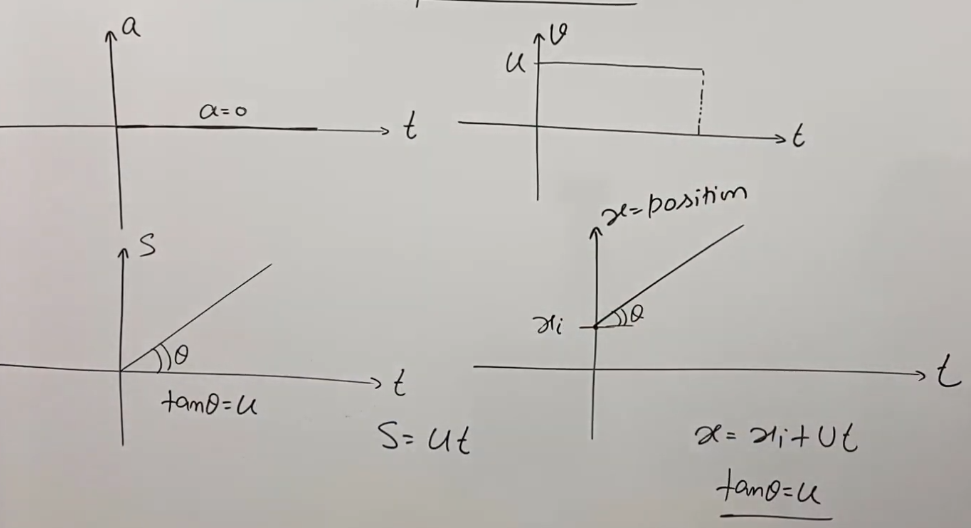 a
a=0
t
v
u
t
S
θ
t
tanθ=u
S=ut
x=position
xi
θ
t
x=xi+ut
tanθ=u